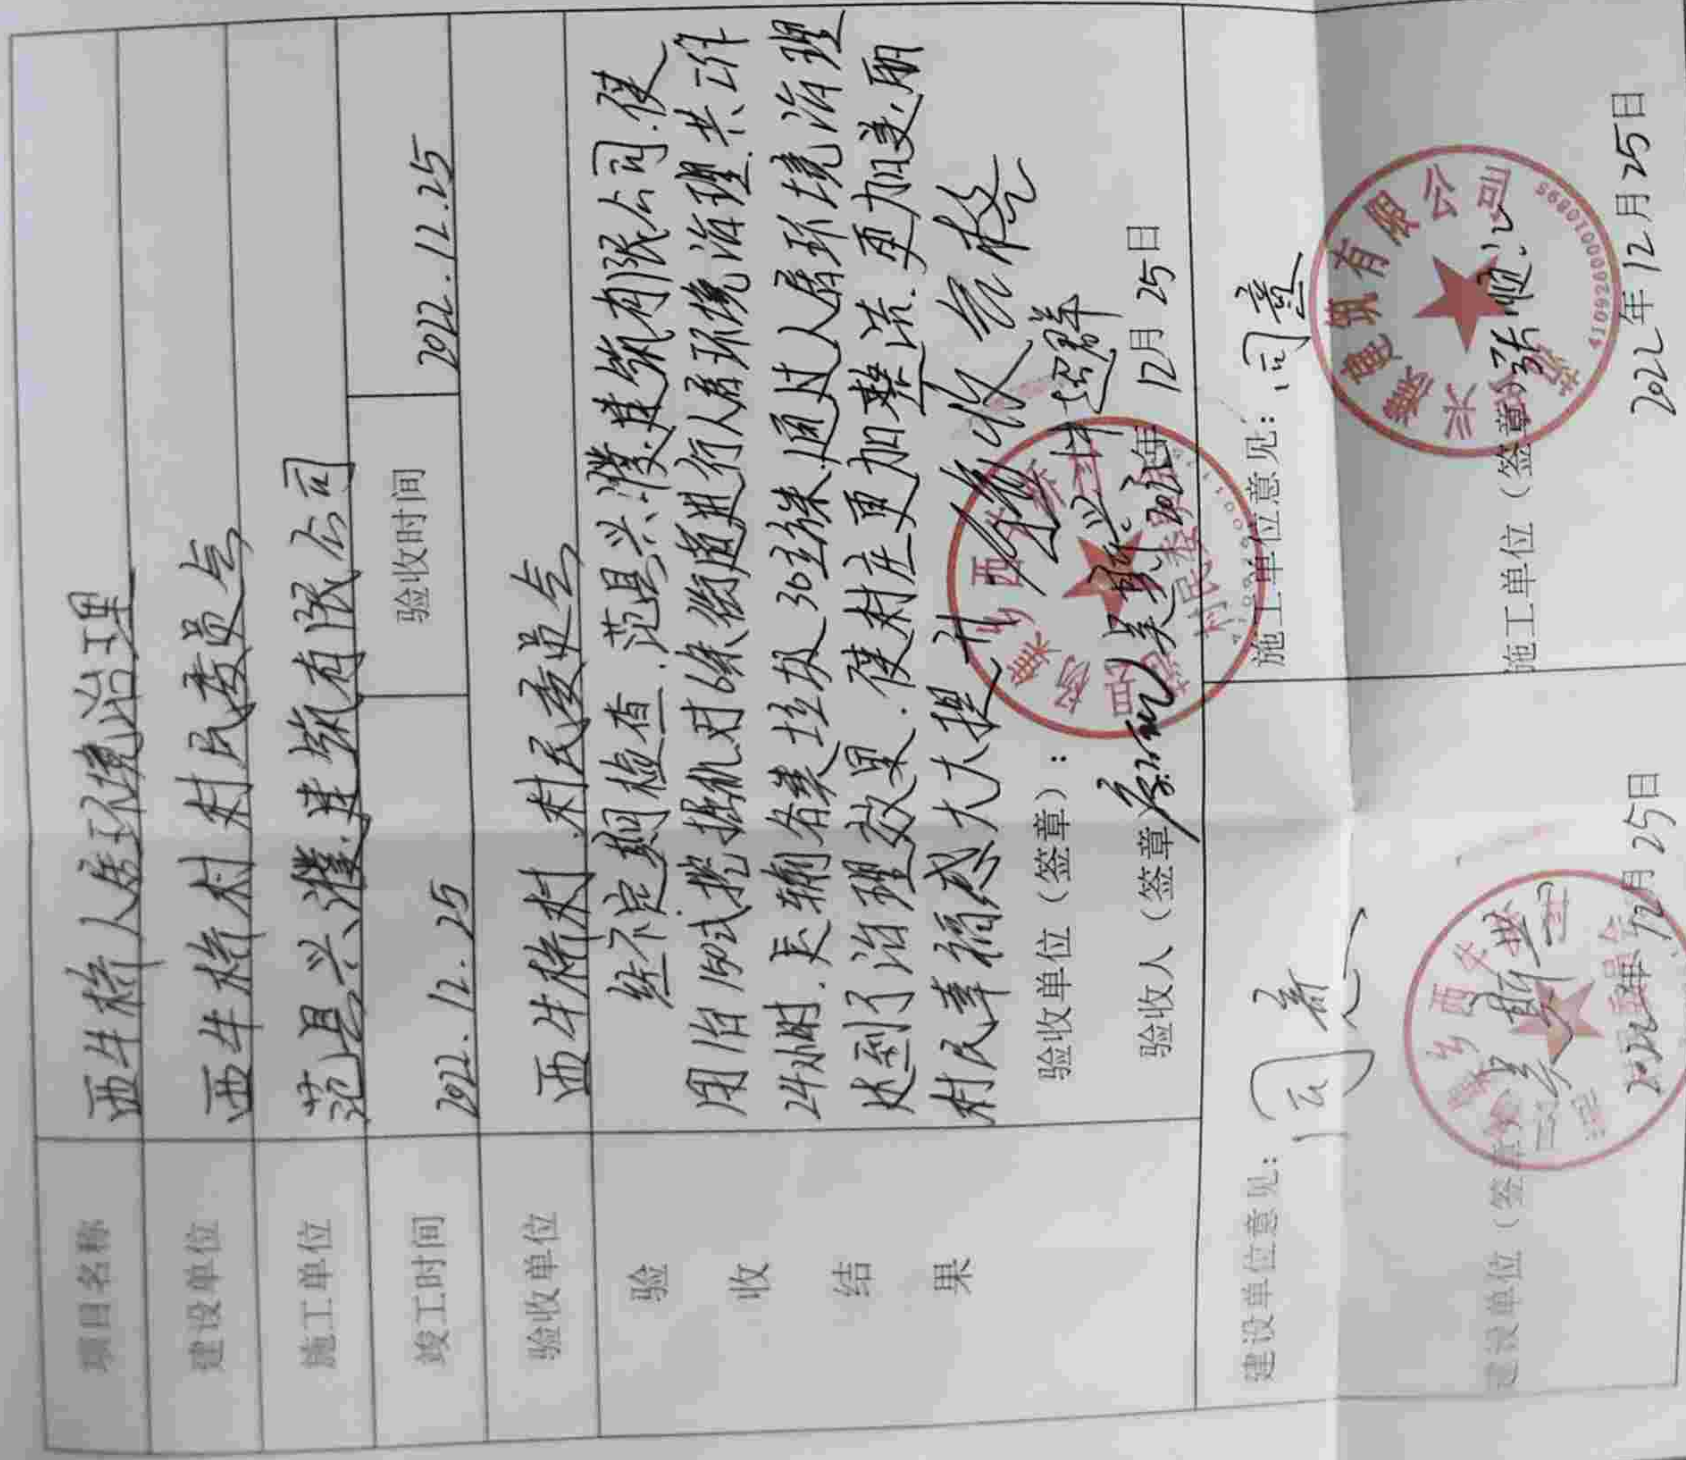 项目名称 西牛桥人居环境治理
建设单位 西牛桥村村民委员会
施工单位 范县兴濮建筑有限公司
竣工时间 2022.12.25 验收时间 2022.12.25
验收单位 西牛桥村村民委员会
验收结果
经不定期检查.范县兴濮建筑有限公司.使
用治150式挖掘机对6条街道进行人居环境治理.共工作
24小时.运输各类垃圾30立方米.通过人居环境治理
达到了治理效果.使村庄更加整洁.更加美丽
村民幸福感大大提升 验收合格
验收单位（签章）：
验收人（签章） 吴斯兴
2022年12月25日
建设单位意见： 同意
建设单位（签章） 吴斯兴
2022年12月25日
施工单位意见： 同意
施工单位（签章） 张顺
2022年12月25日
兴濮建筑有限公司
4109260010895
村民委员会